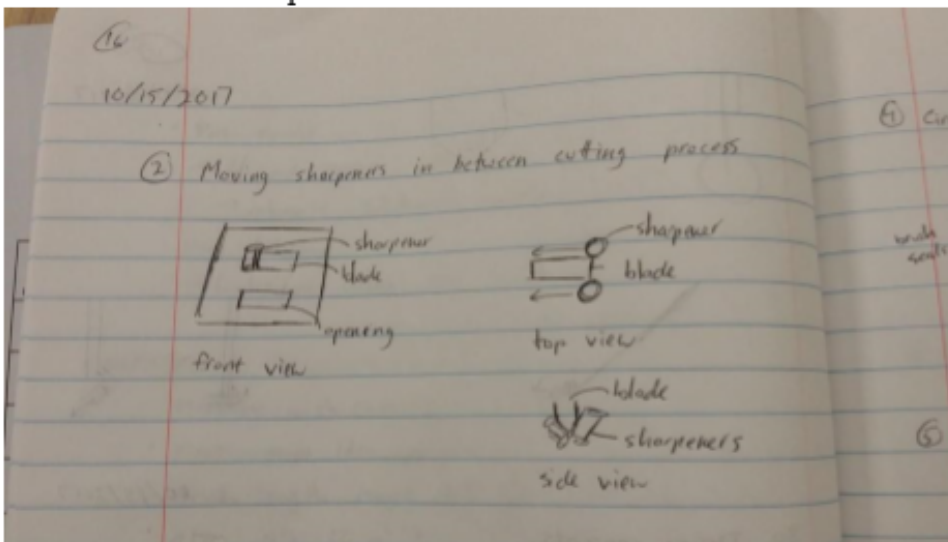 16
10/15/2017
② Moving sharpeners in between cutting process
sharpener
blade
opening
front view
sharpener
blade
top view
blade
sharpeners
side view
④
⑤